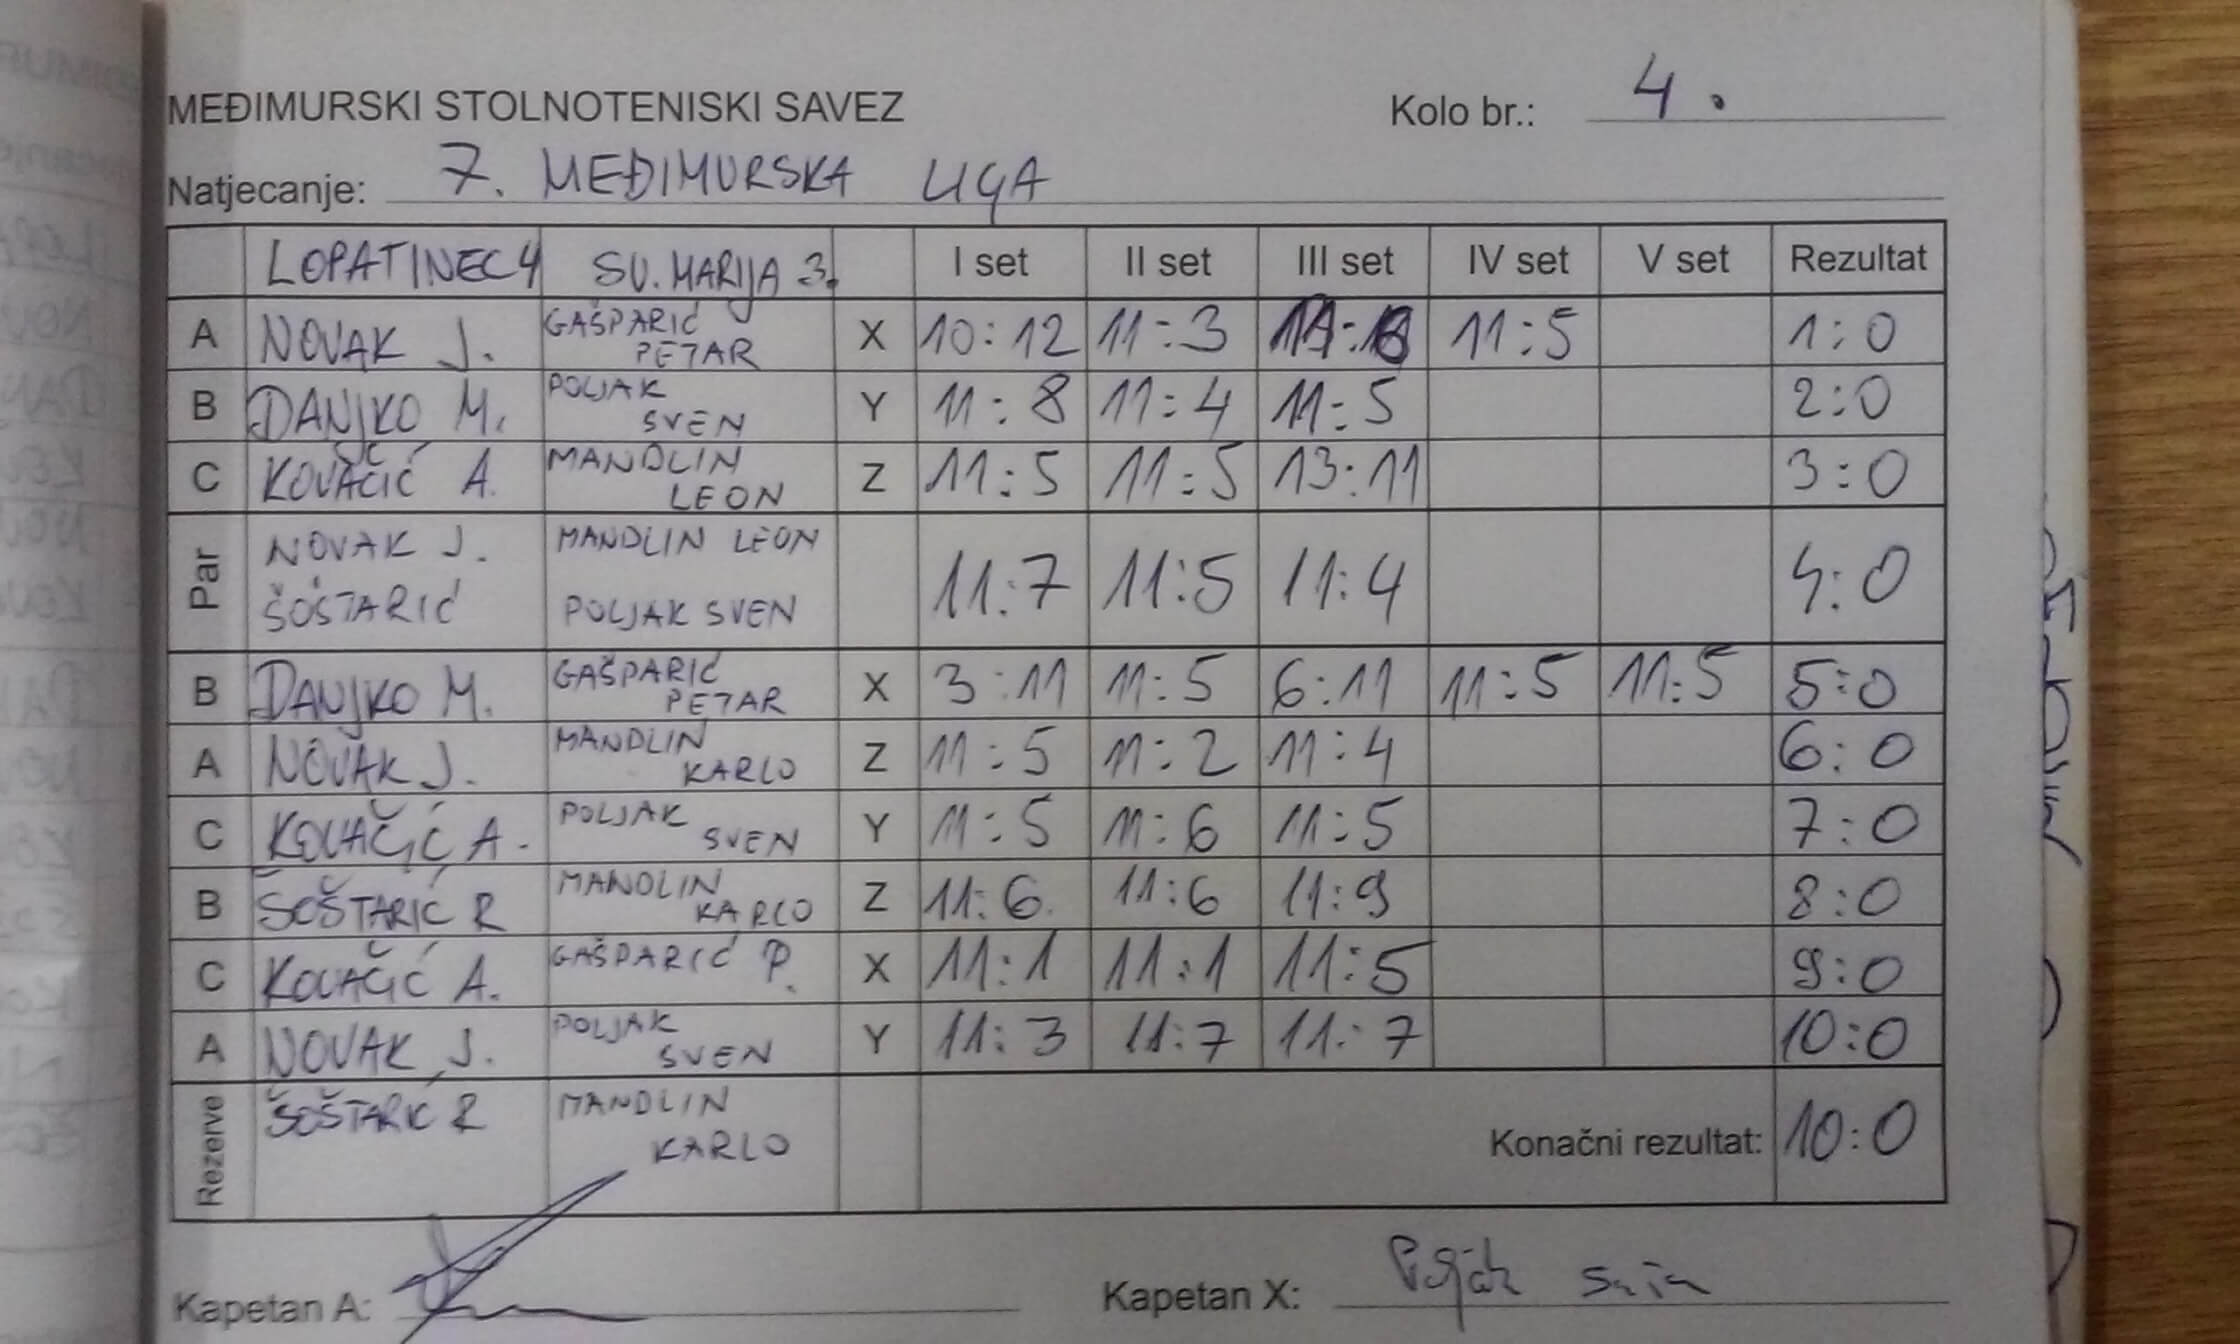 MEĐIMURSKI STOLNOTENISKI SAVEZ Kolo br.: 4.
Natjecanje: 7. MEĐIMURSKA LIGA
LOPATINEC 4 SV. MARIJA 3. I set II set III set IV set V set Rezultat
A NOVAK J. GAŠPARIĆ PETAR X 10:12 11:3 11:5 1:0
B DANJKO M. POLJAK SVEN Y 11:8 11:4 11:5 2:0
C KOVAČIĆ A. MANDLIN LEON Z 11:5 11:5 13:11 3:0
Par NOVAK J. MANDLIN LEON 11:7 11:5 11:4 4:0
ŠOŠTARIĆ POLJAK SVEN
B DANJKO M. GAŠPARIĆ PETAR X 3:11 11:5 6:11 11:5 11:5 5:0
A NOVAK J. MANDLIN KARLO Z 11:5 11:2 11:4 6:0
C KOVAČIĆ A. POLJAK SVEN Y 11:5 11:6 11:5 7:0
B ŠOŠTARIĆ R MANDLIN KARLO Z 11:6 11:6 11:9 8:0
C KOVAČIĆ A. GAŠPARIĆ P. X 11:1 11:1 11:5 9:0
A NOVAK J. POLJAK SVEN Y 11:3 11:7 11:7 10:0
Rezerve ŠOŠTARIĆ R MANDLIN KARLO Konačni rezultat: 10:0
Kapetan A: Kapetan X: